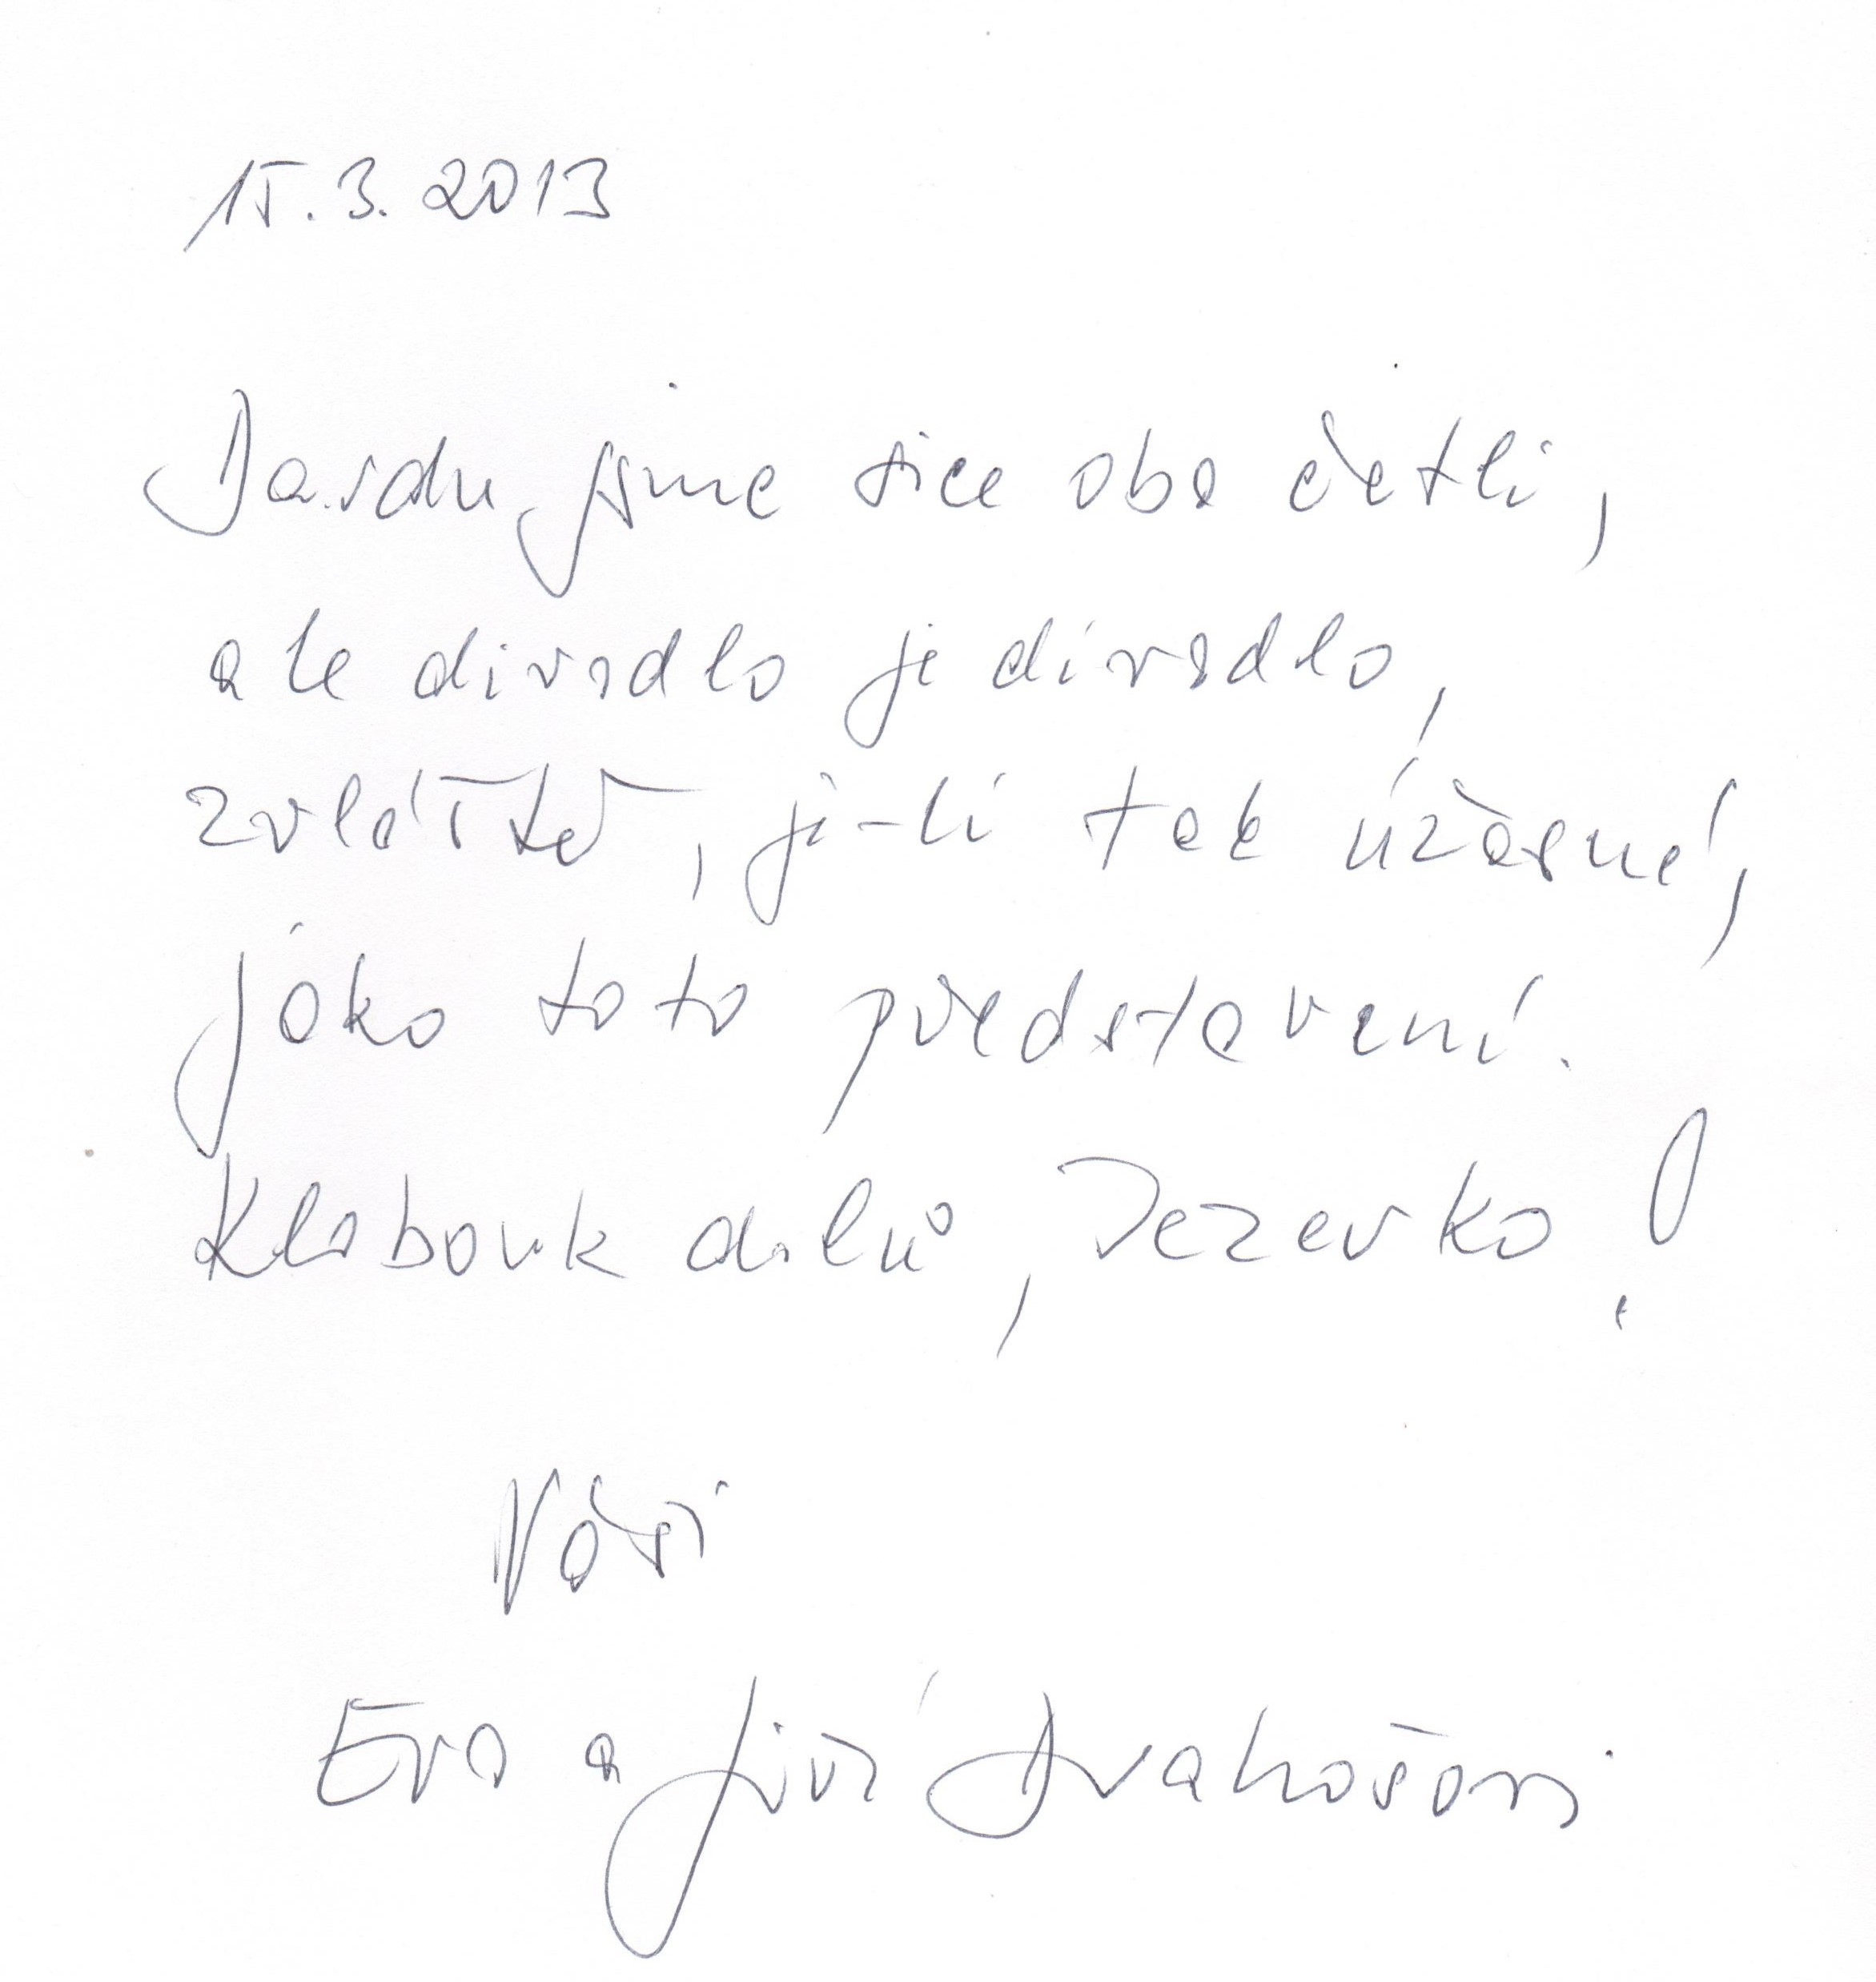 15.3.2013
Jasdu jsme sice oba četli,
ale divadlo je divadlo,
zvláště, je-li tak úžasné,
jako toto představení.
Klobouk dolů, Jezevko!
Vaši
Eva a Jiří Drahošovi